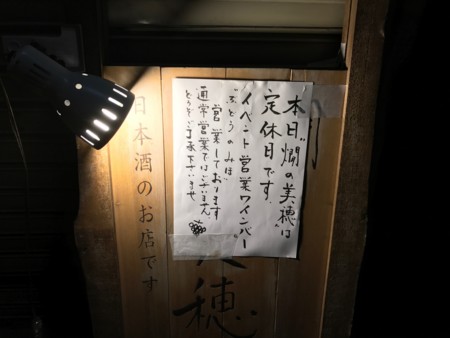 本日"燗の美穂"は
定休日です。
イベント営業ワインバー
"ぶどうのみほ"
営業しております
通常営業ではございません
どうぞご了承下さいませ
日本酒のお店です
美穂